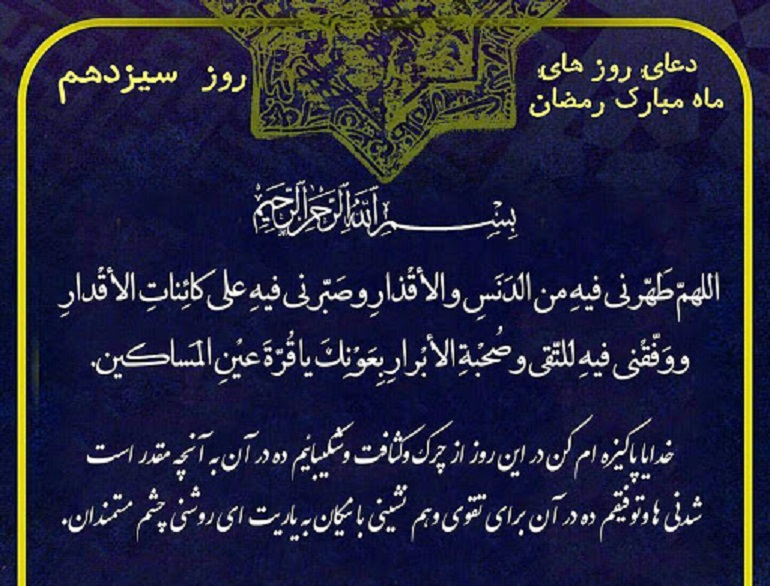 دعای روز های
ماه مبارک رمضان
روز سیزدهم
بِسْمِ اللَّهِ الرَّحْمَنِ الرَّحِيمِ
اللهمّ طَهّرنی فیهِ من الدَنَسِ والأقْذارِ وصَبّرنی فیهِ علی کائِناتِ الأقْدارِ
ووَفّقْنی فیهِ للتّقی وصُحْبْةِ الأبْرارِ بِعَوْنِكَ یا قُرّةَ عیْنِ المَساکین.
خدایا پاکیزه ام کن در این روز از چرک وکثافت وشکیبائیم ده در آن به آنچه مقدر است
شدنی ها وتوفیقم ده در آن برای تقوی وهم نشینی با نیکان به یاریت ای روشنی چشم مستمندان.